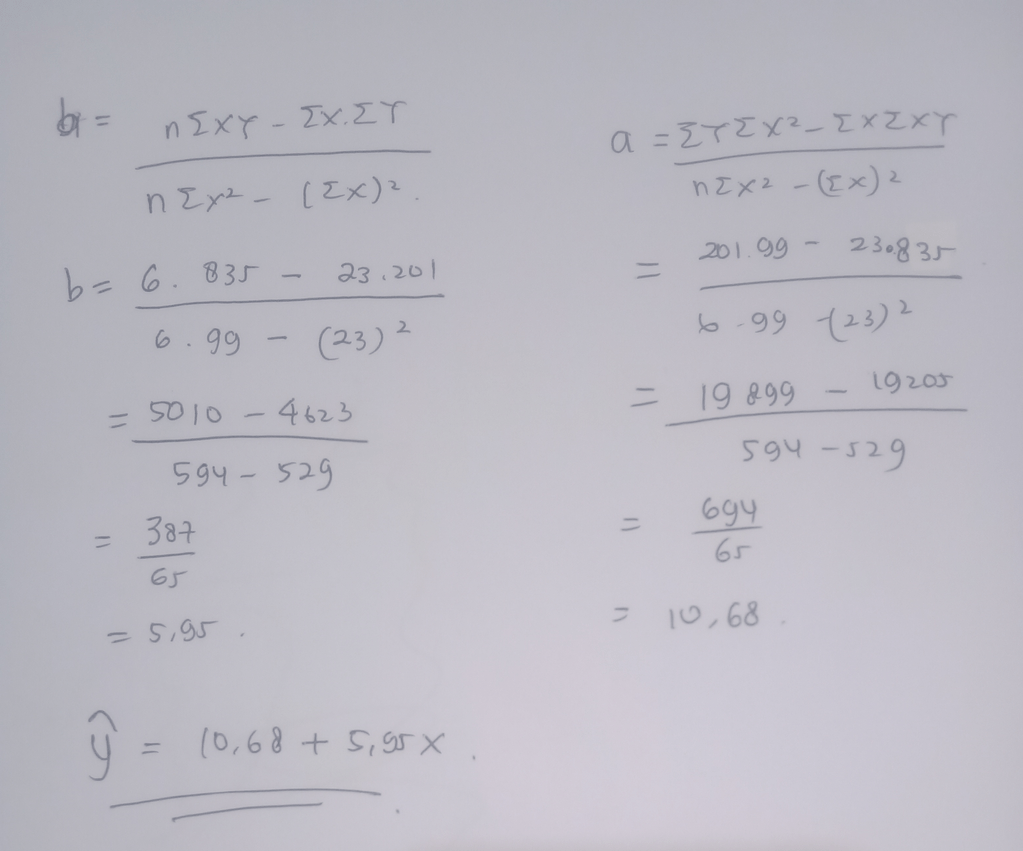 b = nΣXY - ΣX.ΣY
nΣX² - (ΣX)².
b = 6. 835 - 23.201
6.99 - (23)²
= 5010 - 4623
594 - 529
= 387
65
= 5,95.
a = ΣYΣX² - ΣXΣXY
nΣX² - (ΣX)²
= 201.99 - 23.835
6.99 - (23)²
= 19899 - 19205
594 - 529
= 694
65
= 10,68.
ŷ = 10,68 + 5,95x.